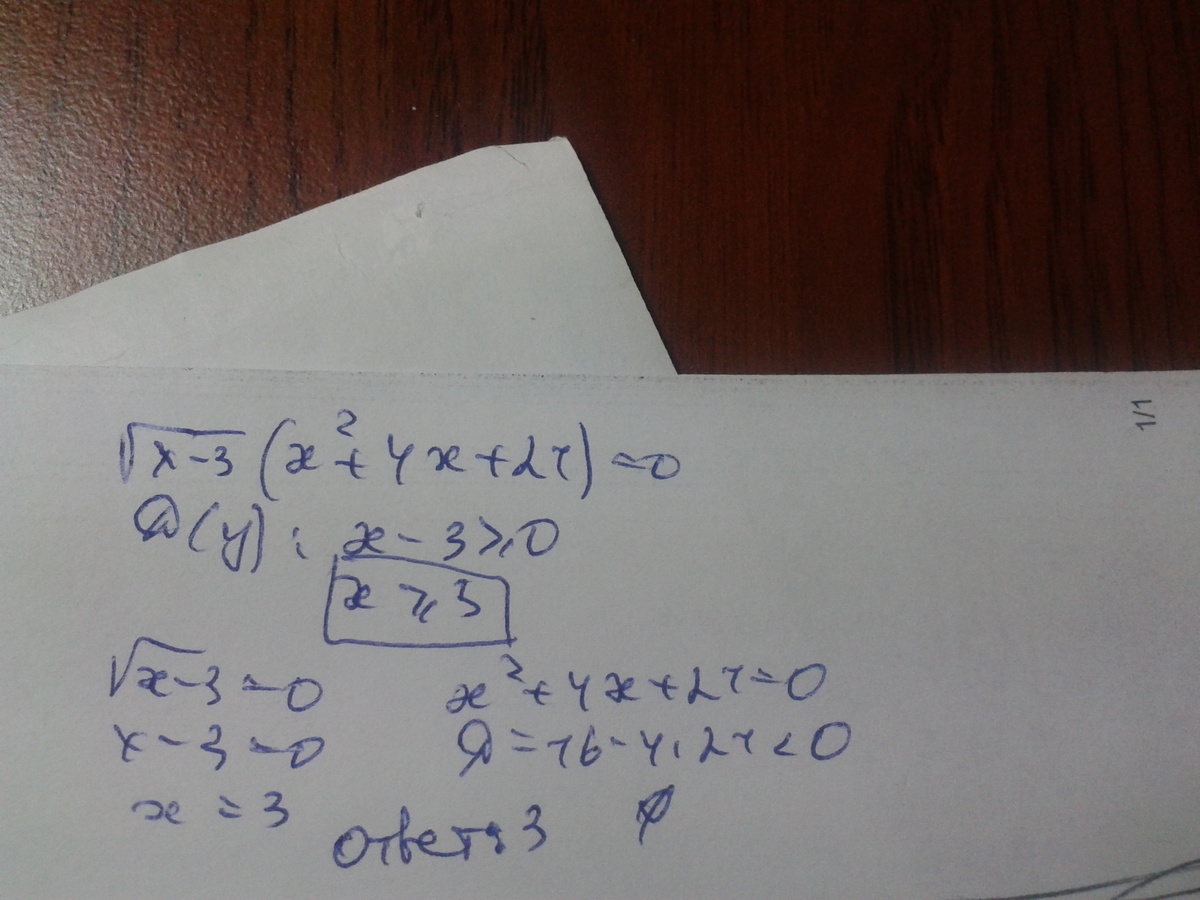 √x-3 (x²+4x+21)=0
D(y): x-3⩾0
x⩾3
√x-3=0 x²+4x+21=0
x-3=0 D=16-4·21<0
x=3 ∅
ответ: 3
1/1